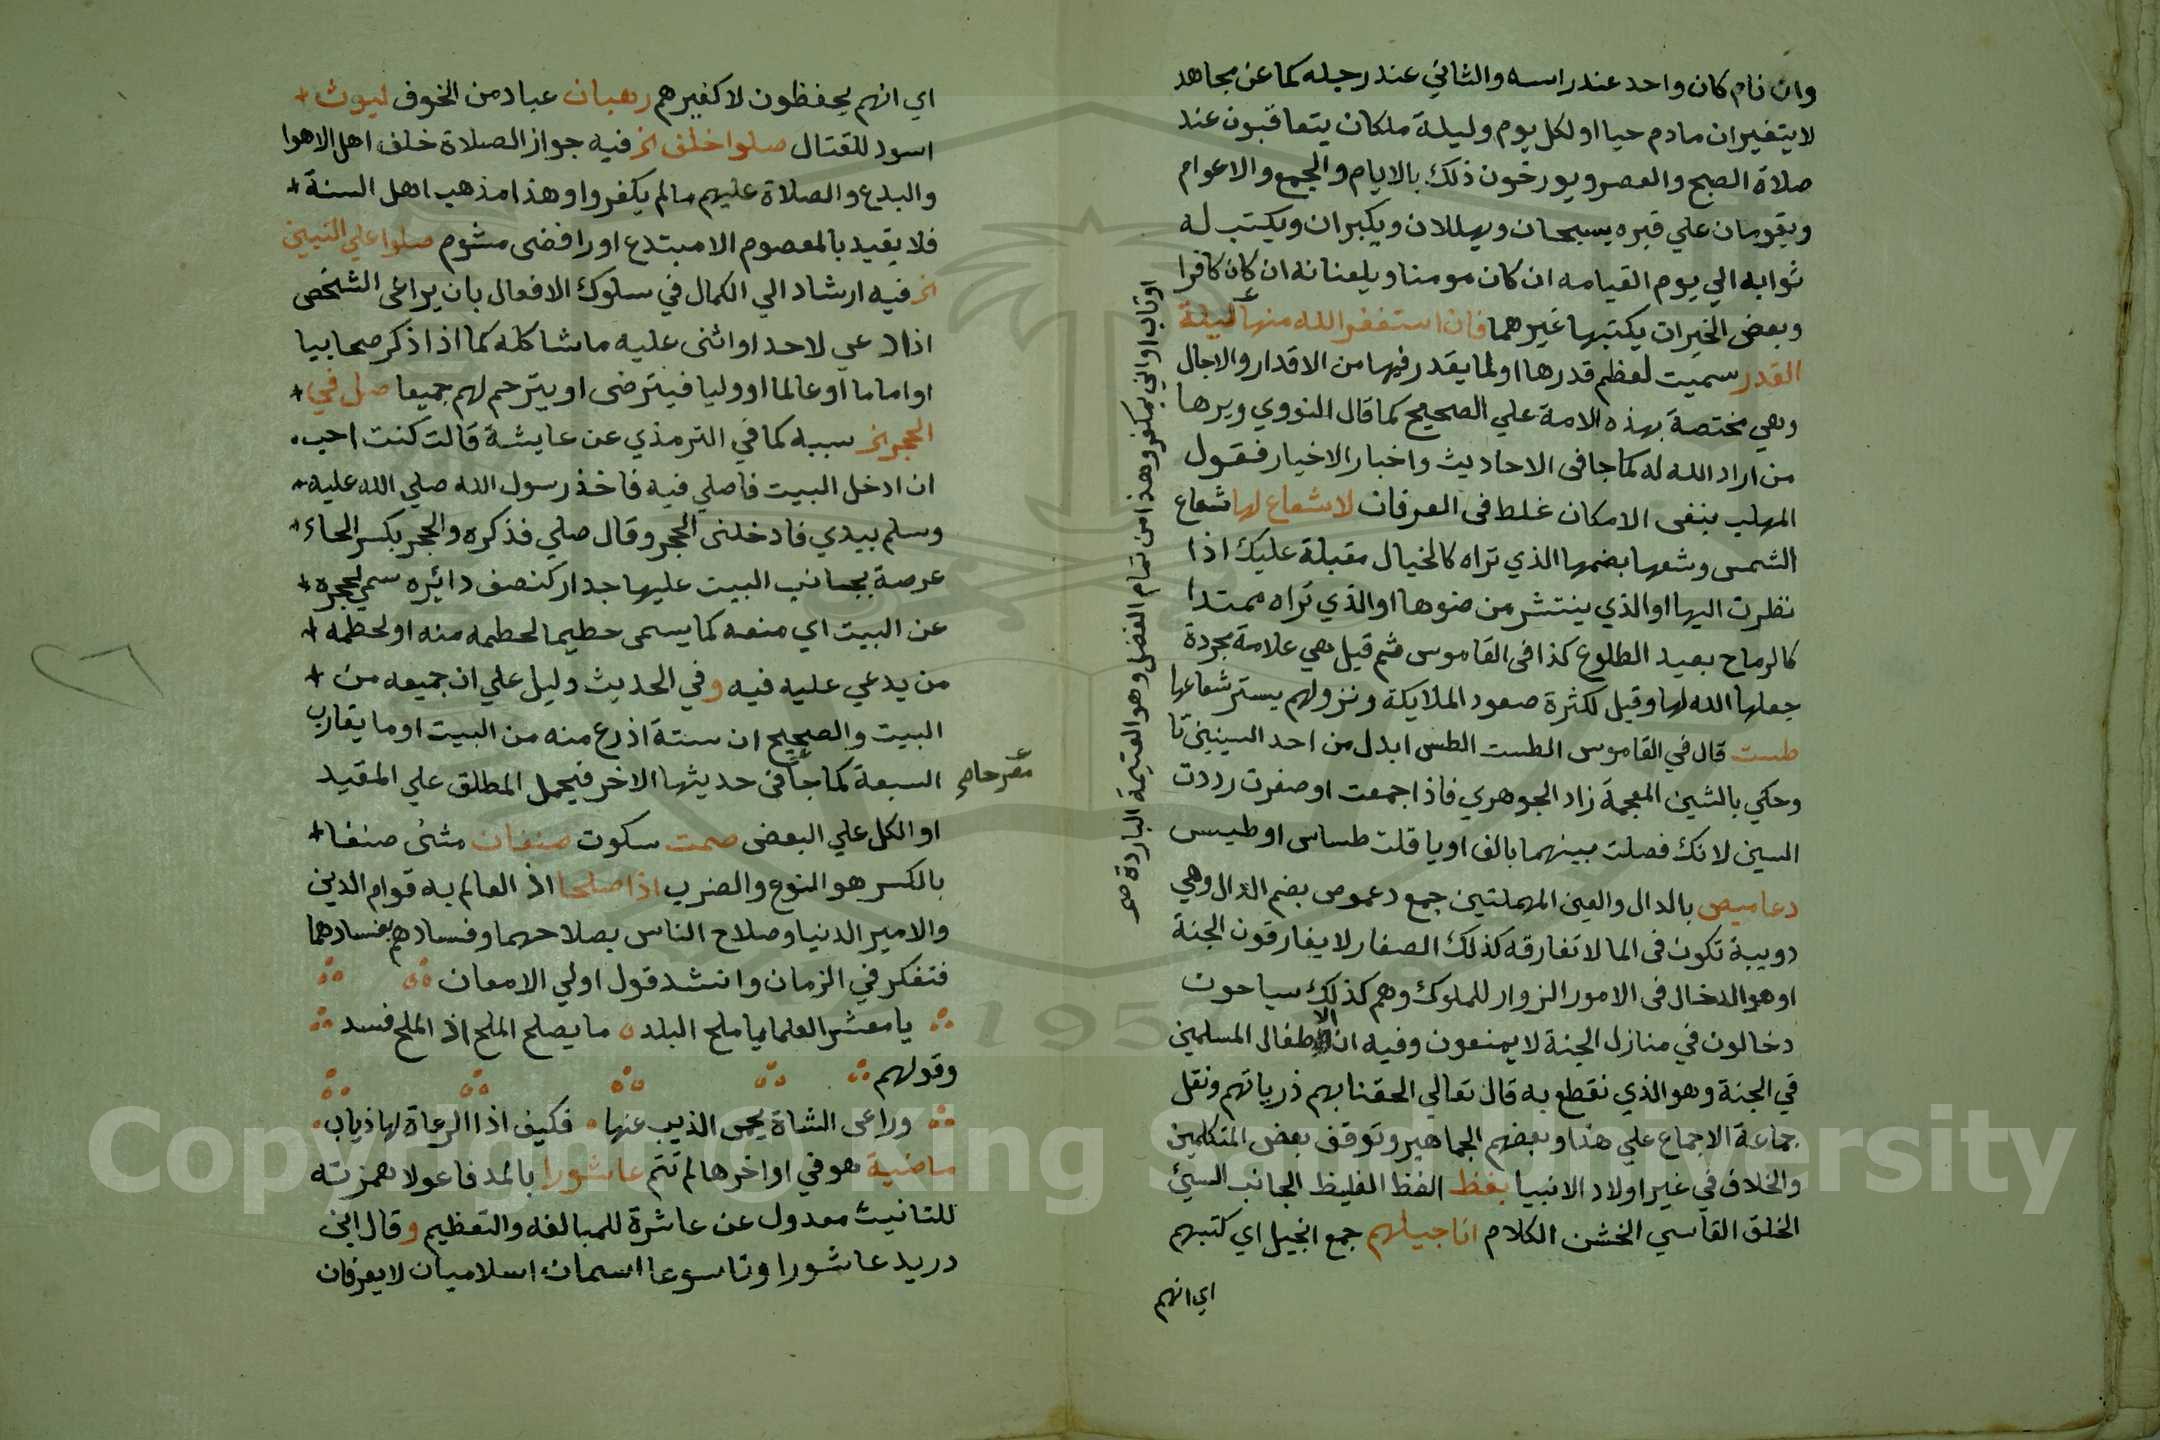 وان نام كان واحد عند راسه والثاني عند رجله كما عن مجاهد
لا يتغيران مادم حيا او لكل يوم وليلة ملكان يتعاقبون عند
صلاة الصبح والعصر ويورخون ذلك بالايام والجمع والاعوام
ويقومان علي قبره يسبحان ويهللان ويكبران ويكتب له
ثوابه الي يوم القيامه ان كان مومنا ويلعنانه ان كان كافرا
وبعض الخيرات يكتبها غيرهما فان استغفر الله منها ليلة
القدر سميت لعظم قدرها او لما يقدر فيها من الاقدار والاجال
وهي مختصة بهذه الامة علي الصحيح كما قال النووي ويرها
من اراد الله له كما جا في الاحاديث واخبار الاخيار فقول
المهلب بنفي الامكان غلط في العرفان لا شعاع لها شعاع
الشمس وشعها بضمها الذي تراه كالخيال مقبلة عليك اذا
نظرت اليها او الذي ينتشر من ضوها او الذي تراه ممتدا
كالرماح بعيد الطلوع كذا في القاموس ثم قيل هي علامة مجردة
جعلها الله لها وقيل لكثرة صعود الملايكة ونزولهم يستر شعاعها
طست قال في القاموس الطست الطس ابدل من احد السينين تا
وحكي بالشين المعجمة زاد الجوهري فاذا جمعت او صغرت رددت
السين لانك فصلت بينهما بالف او يا قلت طساس او طسيس
دعاميص بالدال والعين المهملتين جمع دعموص بضم الدال وهي
دويبة تكون في الما لا تفارقه كذلك الصغار لا يفارقون الجنة
او هو الدخال في الامور الزوار للملوك وهم كذلك سياحون
دخالون في منازل الجنة لا يمنعون وفيه ان الاطفال المسلمين
في الجنة وهو الذي نقطع به قال تعالي الحقنا بهم ذرياتهم ونقل
جماعة الاجماع علي هذا وبعضهم الجماهير وتوقف بعض المتكلمين
والخلاف في غير اولاد الانبيا بفظ الفظ الغليظ الجانب السيئ
الخلق القاسي الخشن الكلام اناجيلهم جمع انجيل اي كتبهم
اي انهم
او تاب او اتي بمكفر وهذا من تمام الفضل وهو الغنيمة الباردة صح
اي انهم يحفظون لا كغيرهم رهبان عباد من الخوف ليوث
اسود للقتال صلوا خلف الخ فيه جواز الصلاة خلف اهل الاهوا
والبدع والصلاة عليهم ما لم يكفروا وهذا مذهب اهل السنة
فلا يقيد بالمعصوم الا مبتدع او رافضي مشوم صلوا علي النبيين
الخ فيه ارشاد الي الكمال في سلوك الافعال بان يراعي الشخص
اذا دعي لاحد او اثني عليه ما شاكله كما اذا ذكر صحابيا
او اماما او عالما او وليا فيترضى او يترحم لهم جميعا صل في
الحجر الخ سببه كما في الترمذي عن عايشة قالت كنت احب
ان ادخل البيت فاصلي فيه فاخذ رسول الله صلي الله عليه
وسلم بيدي فادخلني الحجر وقال صلي فذكره والحجر بكسر الحاء
عرصة بجانب البيت عليها جدار كنصف دائره سمي لحجره
عن البيت اي منعه كما يسمى حطيما لحطمه منه او لحطمه
من يدعي عليه فيه وفي الحديث دليل علي ان جميعه من
البيت والصحيح ان ستة اذرع منه من البيت او ما يقارب
السبعة كما جا في حديثها الاخر فيحمل المطلق علي المقيد
او الكل علي البعض صمت سكوت صنفان مثنى صنفا
بالكسر هو النوع والضرب اذا صلحا اذ العالم به قوام الدين
والامير الدنيا وصلاح الناس بصلاحهما وفسادهم بفسادهما
فتفكر في الزمان وانشد قول اولي الامعان
يا معشر العلما يا ملح البلد ما يصلح الملح اذ الملح فسد
وقولهم
وراعي الشاة يحمي الذيب عنها فكيف اذا الرعاة لها ذياب
ماضية هو في اواخرها لم تتم عاشورا بالمد فاعولا همزته
للتانيث معدول عن عاشرة للمبالغه والتعظيم وقال ابن
دريد عاشورا وتاسوعا اسمان اسلاميان لا يعرفان
٢٦
Copyright © King Saud University
1957